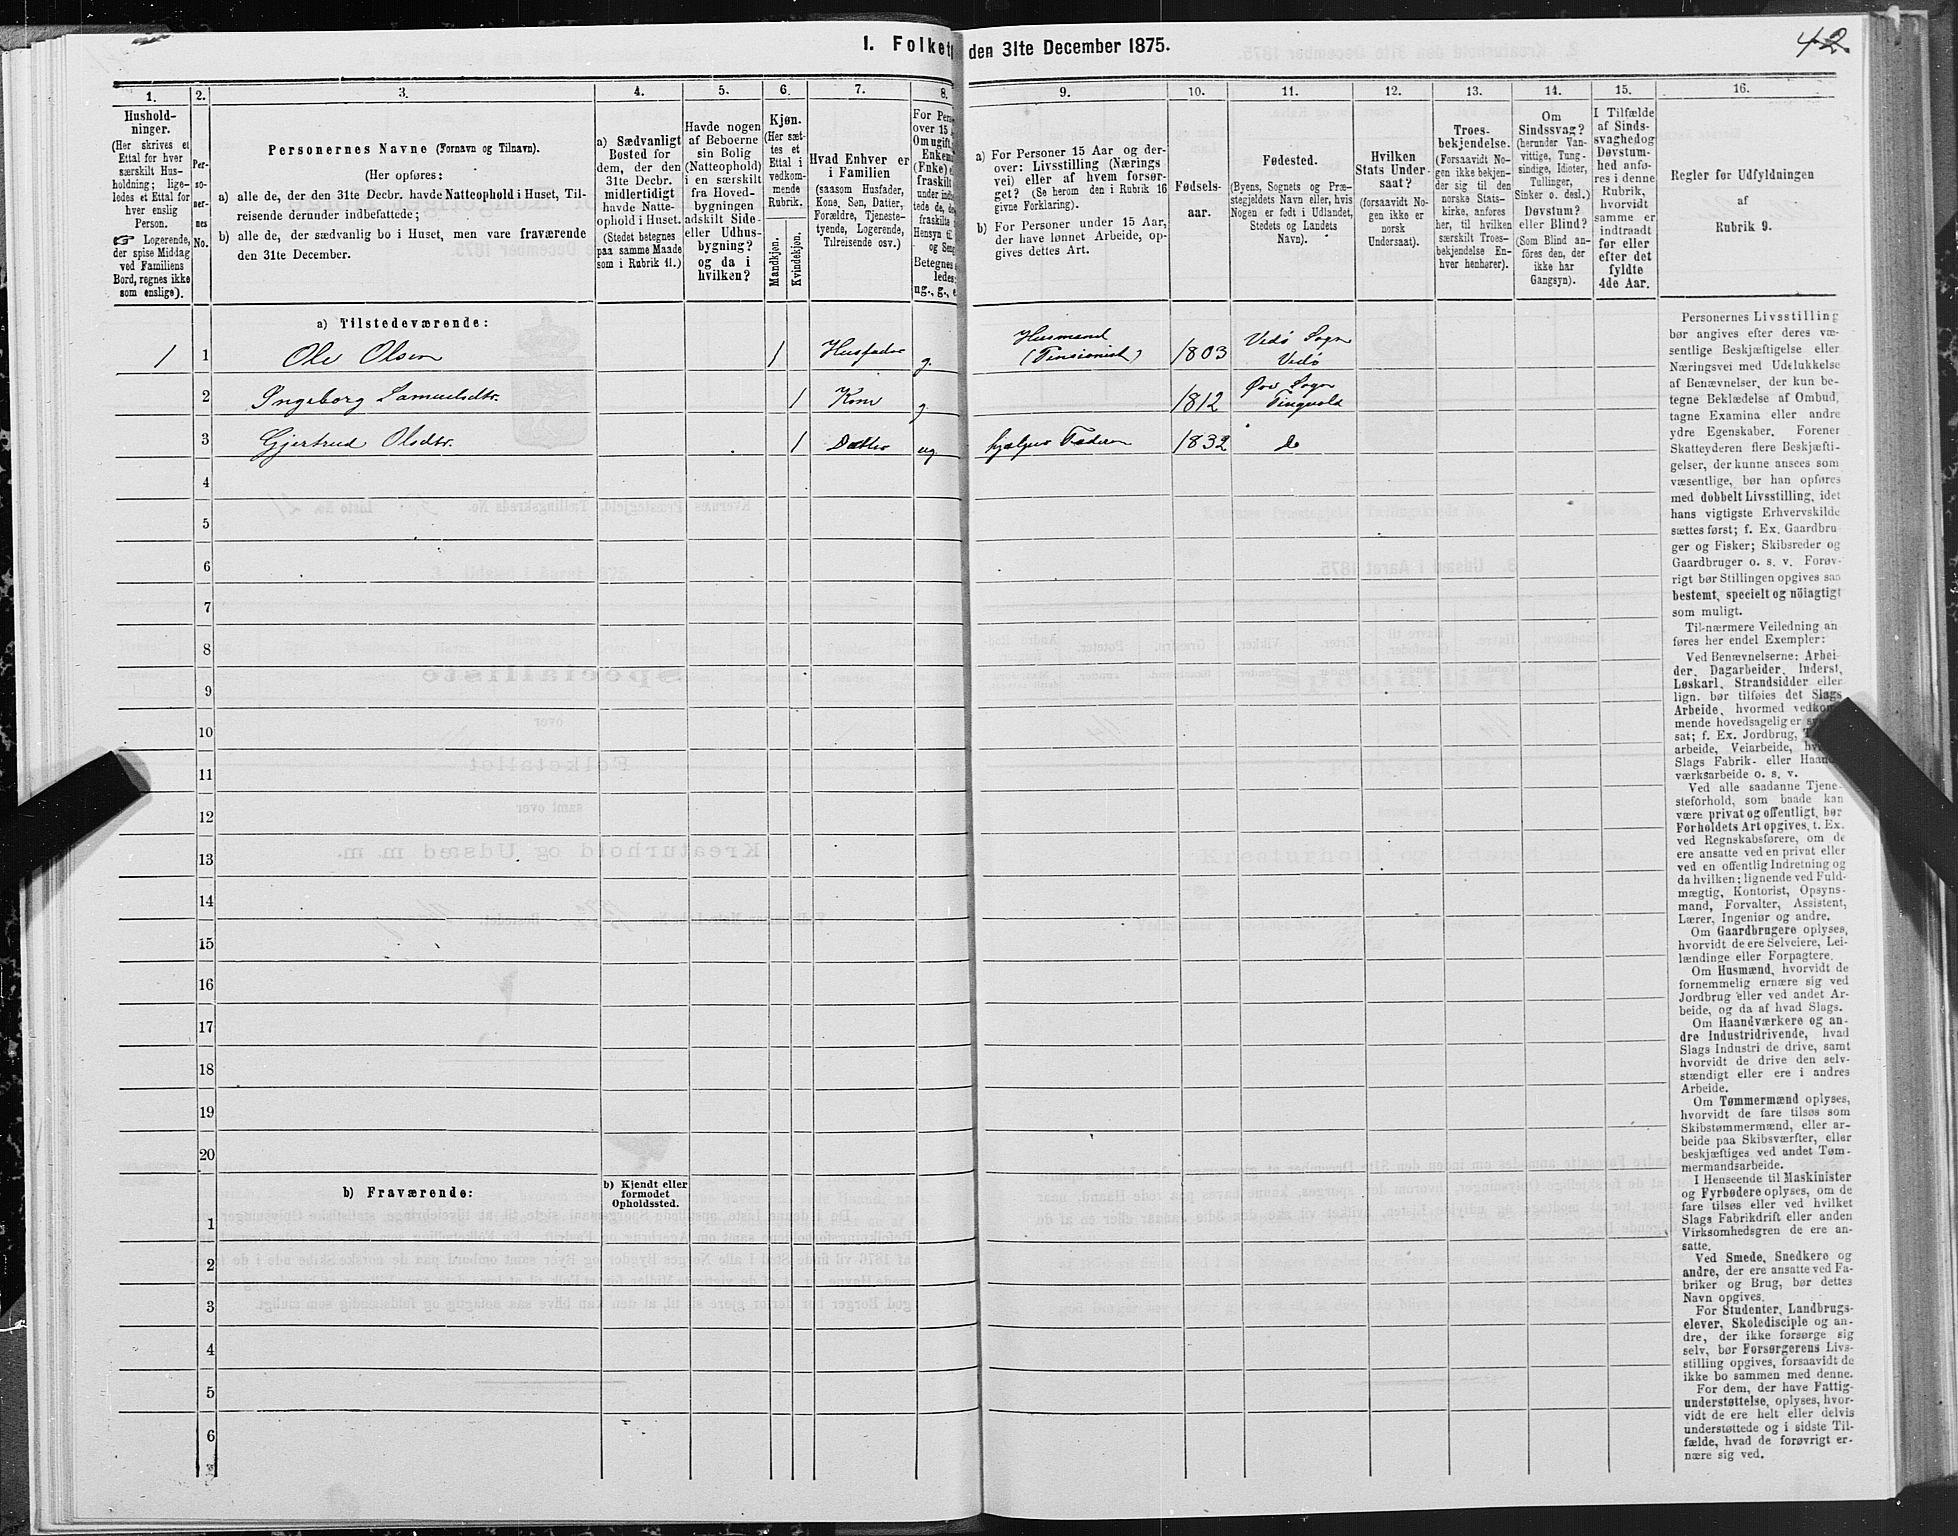 I. Folket den 31te December 1875.
42
1. 2. 3. 4. 5. 6. 7. 8. 9. 10. 11. 12. 13. 14. 15. 16.
Hushold-
ninger.
(Her skrives et
Ettal for hver
særskilt Hus-
holdning; lige-
ledes et Ettal for
hver enslig
Person.
☞ Logerende,
der spise Middag
ved Familiens
Bord, regnes ikke
som enslige).
Per-
so-
ner-
nes
No.
Personernes Navne (Fornavn og Tilnavn).
(Her opføres:
a) alle de, der den 31te Decbr. havde Natteophold i Huset, Til-
reisende derunder indbefattede;
b) alle de, der sædvanlig bo i Huset, men vare fraværende
den 31te December.
a) Sædvanligt
Bosted for
dem, der den
31te Decbr.
midlertidigt
havde Natte-
ophold i Huset.
(Stedet betegnes
paa samme Maade
som i Rubrik 11.)
Havde nogen
af Beboerne
sin Bolig
(Natteophold)
i en særskilt
fra Hoved-
bygningen
adskilt Side-
eller Udhus-
bygning?
og da i
hvilken?
Kjøn.
(Her sæt-
tes et
Ettal i
vedkom-
mende
Rubrik.
Mandkjøn.
Kvindekjøn.
Hvad Enhver er
i Familien
(saasom Husfader,
Kone, Søn, Datter,
Forældre, Tjeneste-
tyende, Logerende,
Tilreisende osv.)
For Pers
over 15
Om ugift,
Enkem
(Enke)
fraskilt
under indb
tede de, de
fraskilte
Hensyn til
og Seng
Betegnes
ledes:
ug., g., e
a) For Personer 15 Aar og der-
over: Livsstilling (Nærings
vei) eller af hvem forsør-
get? (Se herom den i Rubrik 16
givne Forklaring).
b) For Personer under 15 Aar,
der have lønnet Arbeide, op-
gives dettes Art.
Fødsels-
aar.
Fødested.
(Byens, Sognets og Præ-
stegjeldets Navn eller, hvis
Nogen er født i Udlandet,
Stedets og Landets
Navn).
Hvilken
Stats Under-
saat?
(forsaavidt No-
gen ikke er
norsk
Undersaat).
Troes-
bekjendelse.
(Forsaavidt No-
gen ikke bekjen-
der sig til den
norske Stats-
kirke, anføres
her, til hvilken
særskilt Troes-
bekjendelse En-
hver henhører).
Om
Sindssvag?
(herunder Van-
vittige, Tung-
sindige, Idioter,
Tullinger,
Sinker o. desl.)
Døvstum?
eller Blind?
(Som Blind an-
føres den, der
ikke har
Gangsyn).
I Tilfælde
af Sinds-
svaghed og
Døvstum-
hed anfø-
res i denne
Rubrik,
hvorvidt
samme er
indtraadt
før eller
efter det
fyldte
4de Aar.
Regler før Udfyldningen
af
Rubrik 9.
a) Tilstedeværende:
1 1 Ole Olsen 1 Husfader g. Husmand (Pensionist) 1803 Vedø Sogn Vedø
2 Ingeborg Samuelsdtr. 1 Kone g. 1812 Øre Sogn Tingvold
3 Gjertrud Olsdtr. 1 Datter ug hjælper Faderen 1832 do
4
5
6
7
8
9
10
11
12
13
14
15
16
17
18
19
20
b) Fraværende:
b) Kjendt eller
formodet
Opholdssted.
1
2
3
4
5
6
Personernes Livsstilling
bør angives efter deres væ-
sentlige Beskjæftigelse eller
Næringsvei med Udelukkelse
af Benævnelser, der kun be-
tegne Beklædelse af Ombud,
tagne Examina eller andre
ydre Egenskaber. Forener
Skatteyderen flere Beskjæfti-
gelser, der kunne ansees som
væsentlige, bør han opføres
med dobbelt Livsstilling, idet
hans vigtigste Erhvervskilde
sættes først; f. Ex. Gaardbru-
ger og Fisker; Skibsreder og
Gaardbruger o. s. v. Forøv-
rigt bør Stillingen opgives saa
bestemt, specielt og nöiagtigt
som muligt.
Til nærmere Veiledning an
føres her endel Exempler:
Ved Benævnelserne: Arbei-
der, Dagarbeider, Inderst,
Løskarl, Strandsidder eller
lign. bør tilføies det Slags
Arbeide, hvormed vedkom-
mende hovedsagelig er
sat; f. Ex. Jordbrug,
arbeide, Veiarbeide,
Slags Fabrik- eller Haand-
værksarbeide o. s. v.
Ved alle saadanne Tjene-
steforhold, som baade kan
være privat og offentligt, bør
Forholdets Art opgives, t. Ex.
ved Regnskabsførere, om de
ere ansatte ved en privat eller
ved en offentlig Indretning og
da hvilken; lignende ved Fuld-
mægtig, Kontorist, Opsyns-
mand, Forvalter, Assistent,
Lærer, Ingeniør og andre.
Om Gaardbrugere oplyses,
hvorvidt de ere Selveiere, Lei-
lændinge eller Forpagtere.
Om Husmænd, hvorvidt de
fornemmelig ernære sig ved
Jordbrug eller ved andet Ar-
beide, og da af hvad Slags.
Om Haandværkere og an-
dre Industridrivende, hvad
Slags Industri de drive, samt
hvorvidt de drive den selv-
stændigt eller ere i andres
Arbeide.
Om Tømmermænd oplyses,
hvorvidt de fare tilsøs som
Skibstømmermænd, eller ar-
beide paa Skibsværfter, eller
beskjæftiges ved andet Tøm-
mermandsarbeide.
I Henseende til Maskinister
og Fyrbødere oplyses, om de
fare tilsøs eller ved hvilket
Slags Fabrikdrift eller anden
Virksomhedsgren de ere an-
satte.
Ved Smede, Snedkere og
andre, der ere ansatte ved Fa-
briker og Brug, bør dettes
Navn opgives.
For Studenter, Landbrugs-
elever, Skoledisciple og an-
dre, der ikke forsørge sig
selv, bør Forsørgerens Livs-
stilling opgives, forsaavidt de
ikke bo sammen med denne.
For dem, der have Fattig-
understøttelse, oplyses, hvor-
vidt de ere helt eller delvis
understøttede og i sidste Til-
fælde, hvad de forøvrigt er-
nære sig ved.